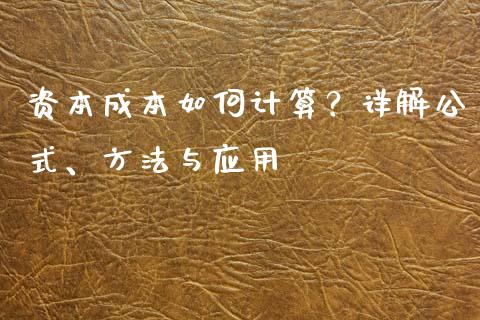 资本成本如何计算？详解公
式、方法与应用